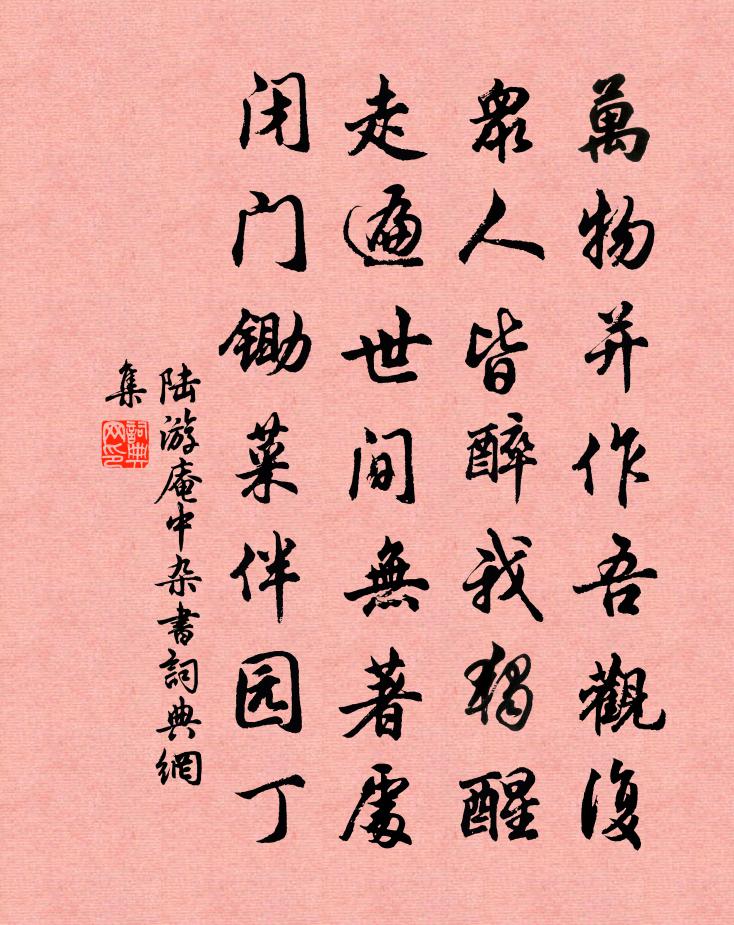 萬物并作吾觀復
眾人皆醉我獨醒
走遍世间無著處
闭门锄菜伴园丁
陆游庵中杂書詞典網
集
詞典
网印